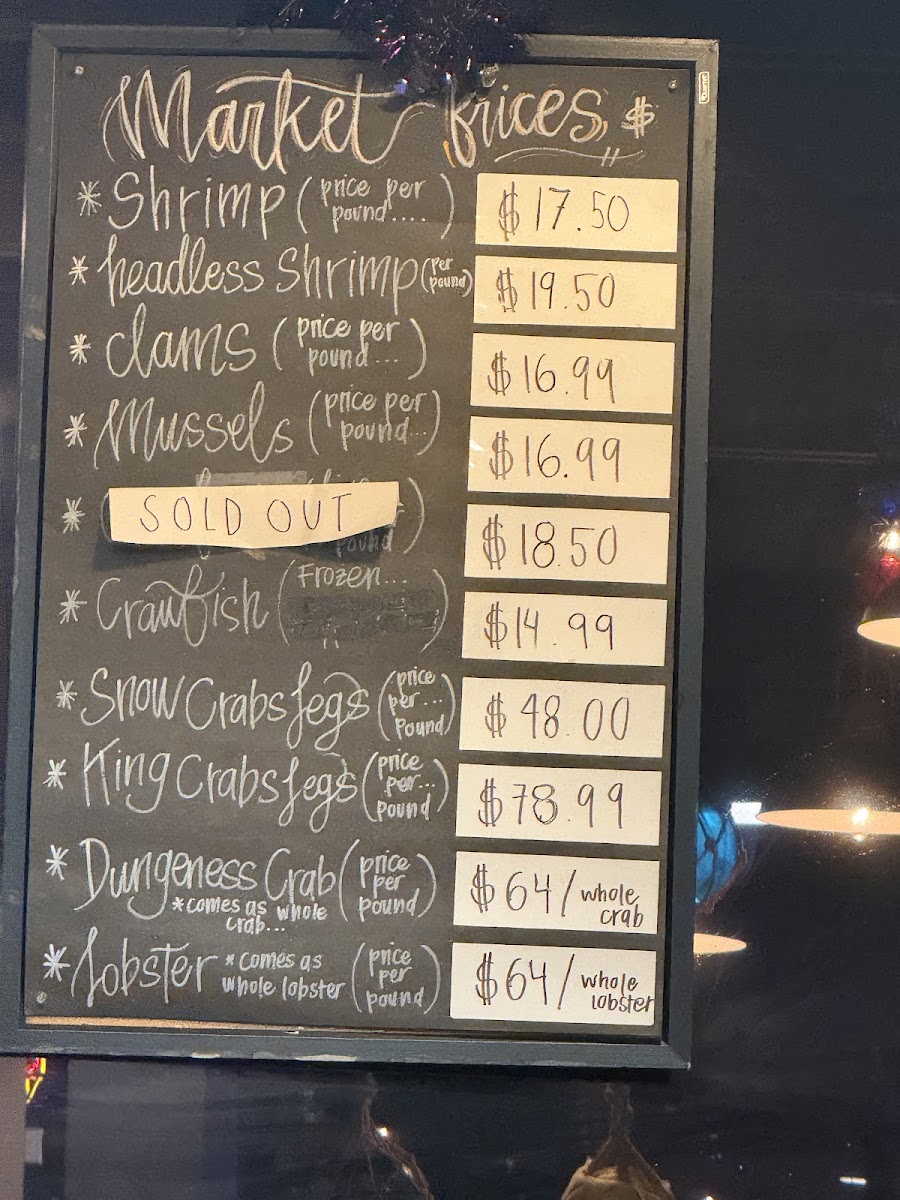 Market Prices, $
* Shrimp (price per pound....) $17.50
* headless Shrimp (per pound) $19.50
* clams (price per pound...) $16.99
* Mussels (price per pound..) $16.99
* SOLD OUT pound) $18.50
* Crawfish (Frozen... ) $14.99
* Snow Crabs Legs (price per... Pound) $48.00
* King Crabs Legs (price per... pound) $78.99
* Dungeness Crab (price per pound) $64/whole crab
*comes as whole crab...
* Lobster *comes as whole lobster (price per pound) $64/whole lobster